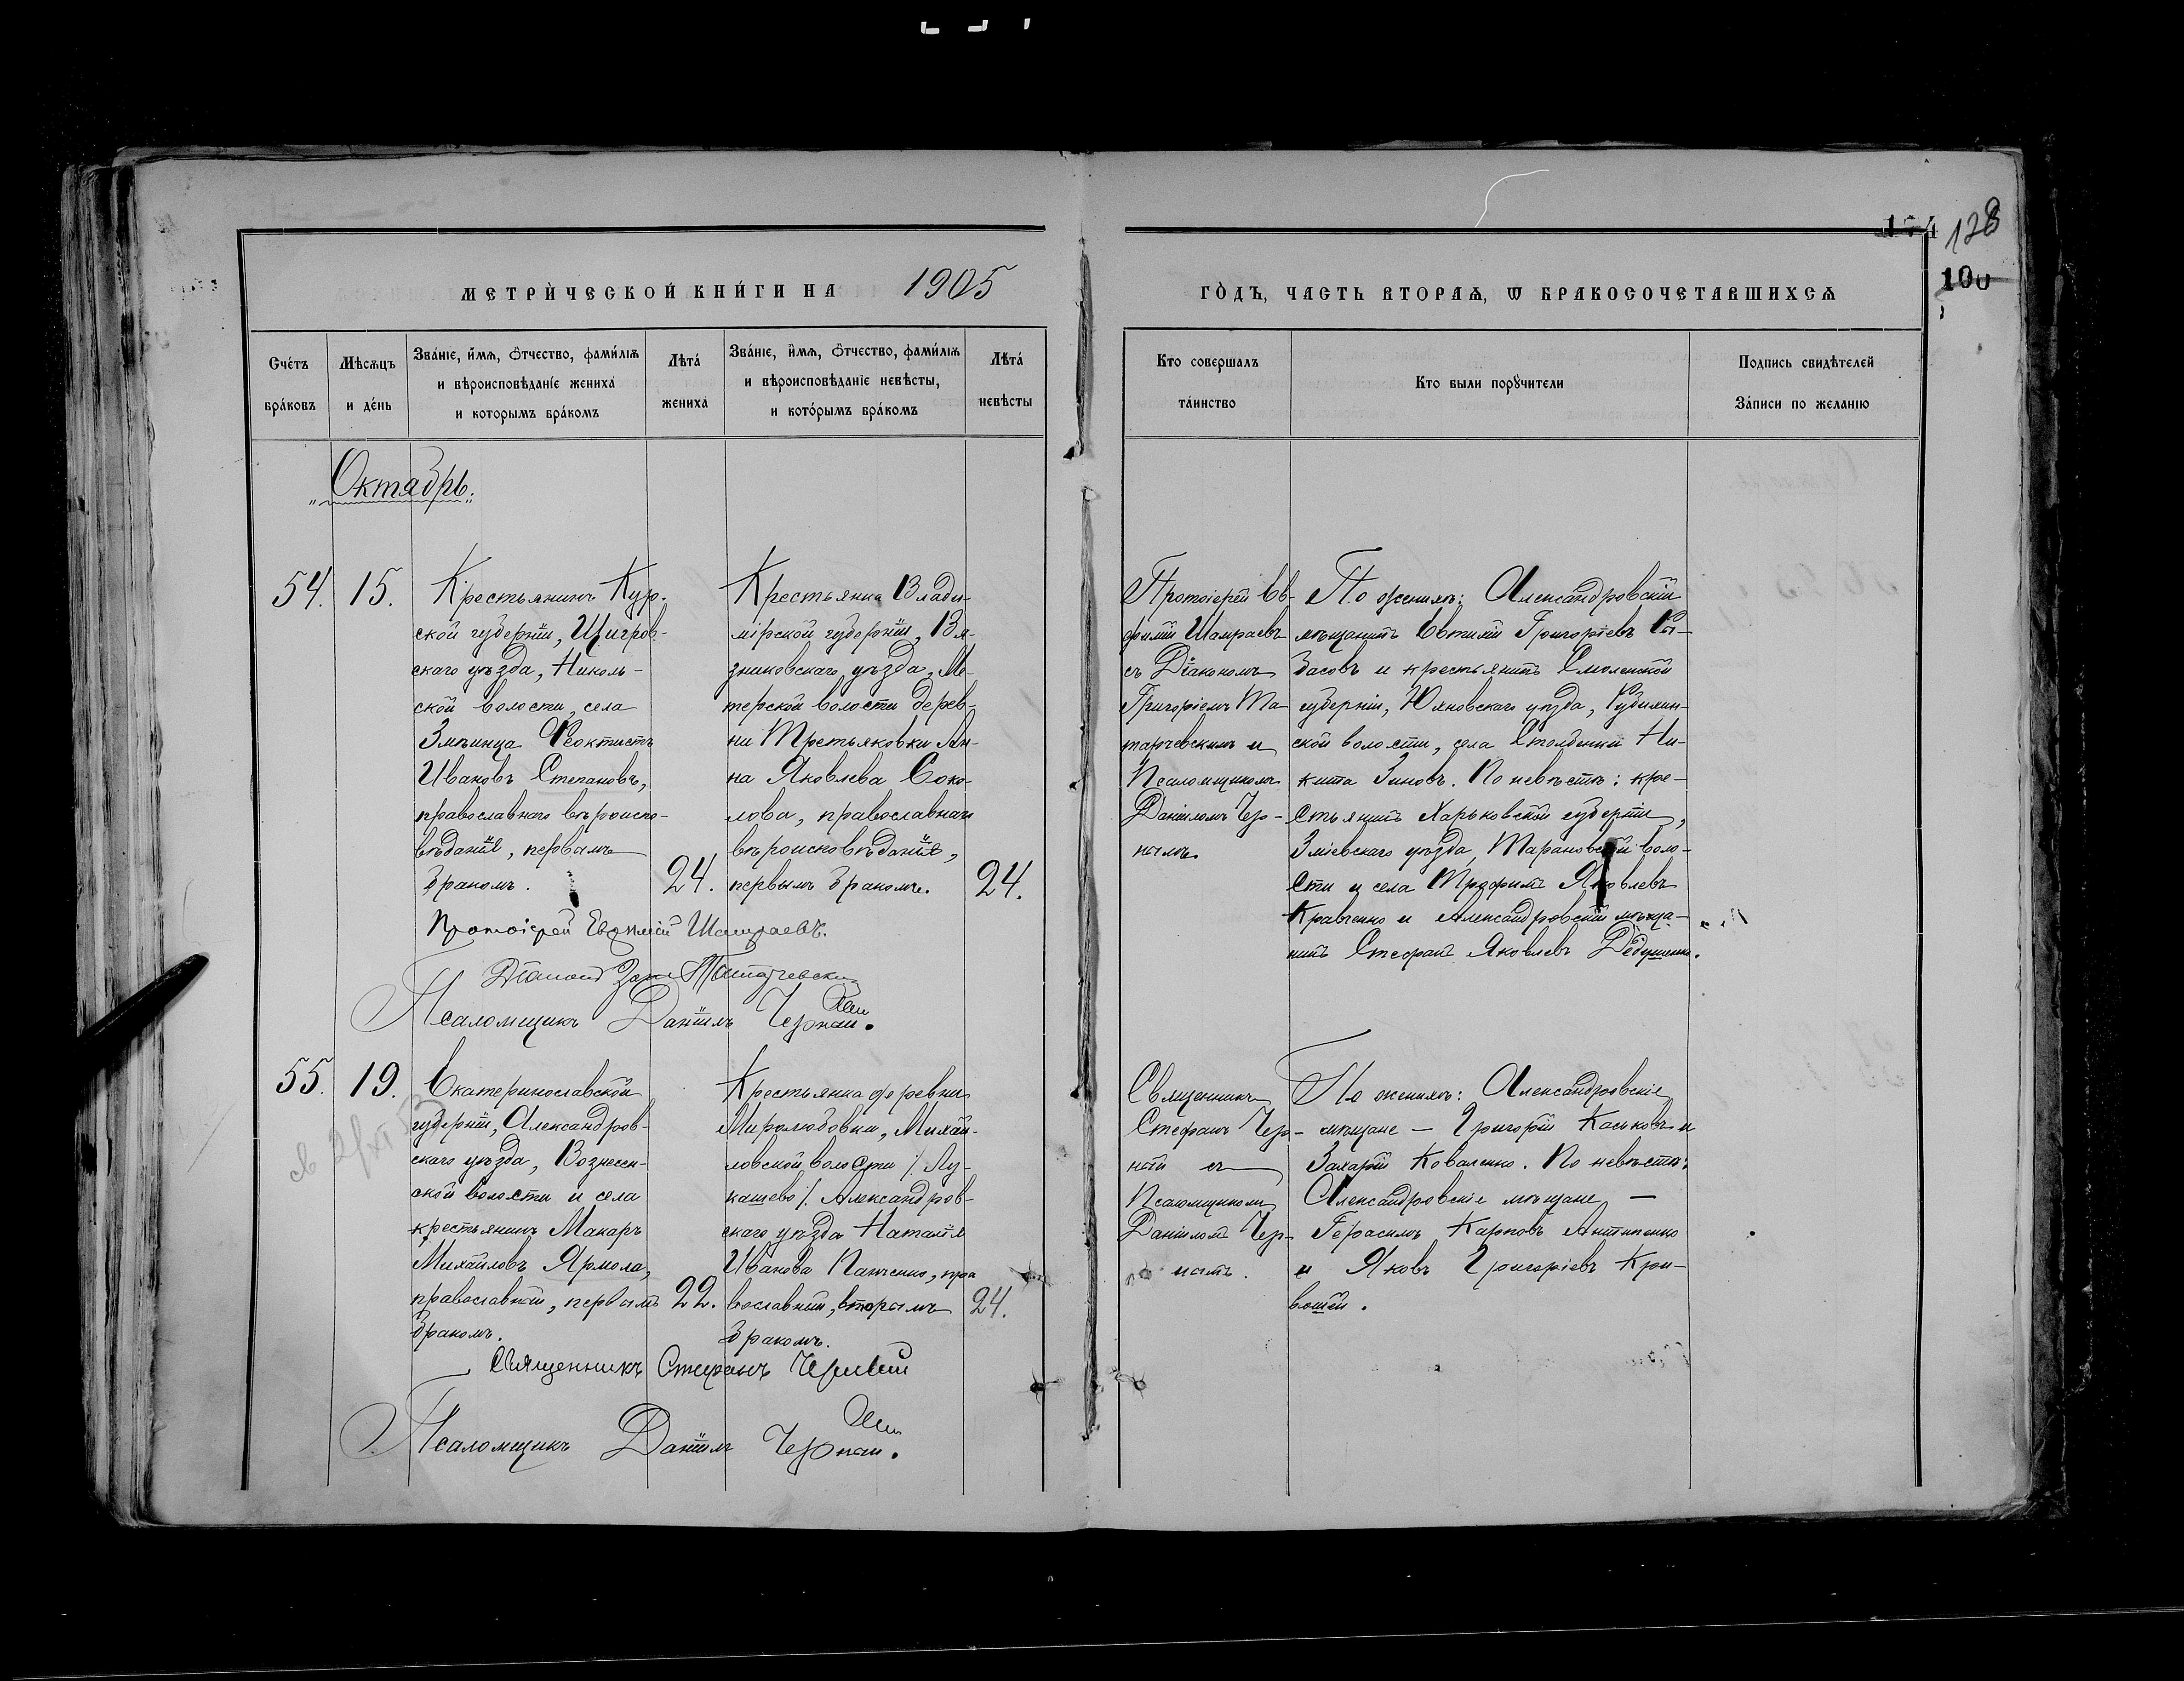 128
100
МЕТРИЧЕСКОЙ КНИГИ НА 1905
ГОДЪ, ЧАСТЬ ВТОРАѦ, Ѡ БРАКОСОЧЕТАВШИХСѦ
Счетъ браковъ
Мѣсѧцъ и день
Званіе, имѧ, ѻтчество, фамиліѧ
и вѣроисповѣданіе жениха
и которымъ бракомъ
Лѣта жениха
Званіе, имѧ, ѻтчество, фамиліѧ
и вѣроисповѣданіе невѣсты,
и которымъ бракомъ
Лѣта невѣсты
Кто совершалъ
таинство
Кто были порꙋчители
Подпись свидѣтелей
Записи по желанію
Октябрь.
54.
15.
Крестьянинъ Кур-
ской губерніи, Щигров-
скаго уѣзда, Николь-
ской волости, села
Змѣинца Ѳеоктистъ
Ивановъ Степановъ,
православнаго вѣроиспо-
вѣданія, первымъ
бракомъ.
24.
Крестьянка Влади-
мірской губерніи, Вя-
зниковскаго уѣзда, Ме-
терской волости дерев-
ни Третьяковки Ан-
на Яковлева Соко-
лова, православнаго
вѣроисповѣданія,
первымъ бракомъ.
24.
Протоіерей Ев-
фимій Шамраевъ
съ Діакономъ
Григоріемъ Та-
тарчевскимъ и
Псаломщикомъ
Даніиломъ Чер-
нымъ.
По женихѣ: Александровскій
мѣщанинъ Евтихій Григорьевъ
и крестьянинъ Смоленской
губерніи, Юхновскаго уѣзда,
ской волости, села Ни-
кита Зиновъ. По невѣстѣ: кре-
стьянинъ Харьковской губерніи,
Зміевскаго уѣзда, Тарановской воло-
сти и села Трофимъ Яковлевъ
Кравченко и Александровскій мѣща-
нинъ Стефанъ Яковлевъ Дедушенко.
Протоіерей Евфимій Шамраевъ.
Діаконъ
Псаломщикъ Даніилъ
55.
19.
Екатеринославской
губерніи, Александров-
скаго уѣзда, Вознесен-
ской волости и села
крестьянинъ Макаръ
Михайловъ Ярмола,
православный, первымъ
бракомъ.
22.
Крестьянка деревни
Миролюбовки, Михай-
ловской волости /. Лу-
кашево /. Александров-
скаго уѣзда Наталія
Иванова Панченко, пра
вославный, вторымъ
бракомъ.
24.
Священникъ
Стефанъ Чер-
ный съ
Псаломщикомъ
Даніиломъ Чер-
нымъ.
По женихѣ: Александровскіе
мѣщане — Григорій Каськовъ и
Захарій Коваленко. По невѣстѣ:
Александровскіе мѣщане —
Герасимъ Карповъ Антипенко
и Яковъ Григоріевъ Кри-
вошей.
Священникъ Стефанъ Черный
Псаломщикъ Даніилъ